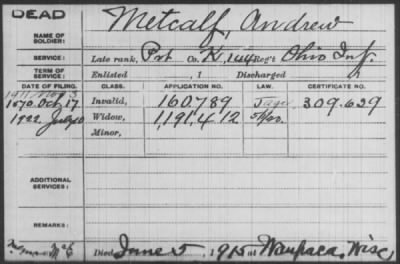 DEAD
NAME OF SOLDIER:
Metcalf, Andrew
SERVICE:
Late rank, Pvt Co. K, 144 Reg't Ohio Inf.
TERM OF SERVICE:
Enlisted , 1 Discharged
DATE OF FILING. CLASS. APPLICATION NO. LAW. CERTIFICATE NO.
Oct. 17 Invalid, 160.789 309.629
1922 July 10 Widow, 1,191,412
Minor,
ADDITIONAL SERVICES:
REMARKS:
Died June 5, 1915 at Waupaca, Wisc,